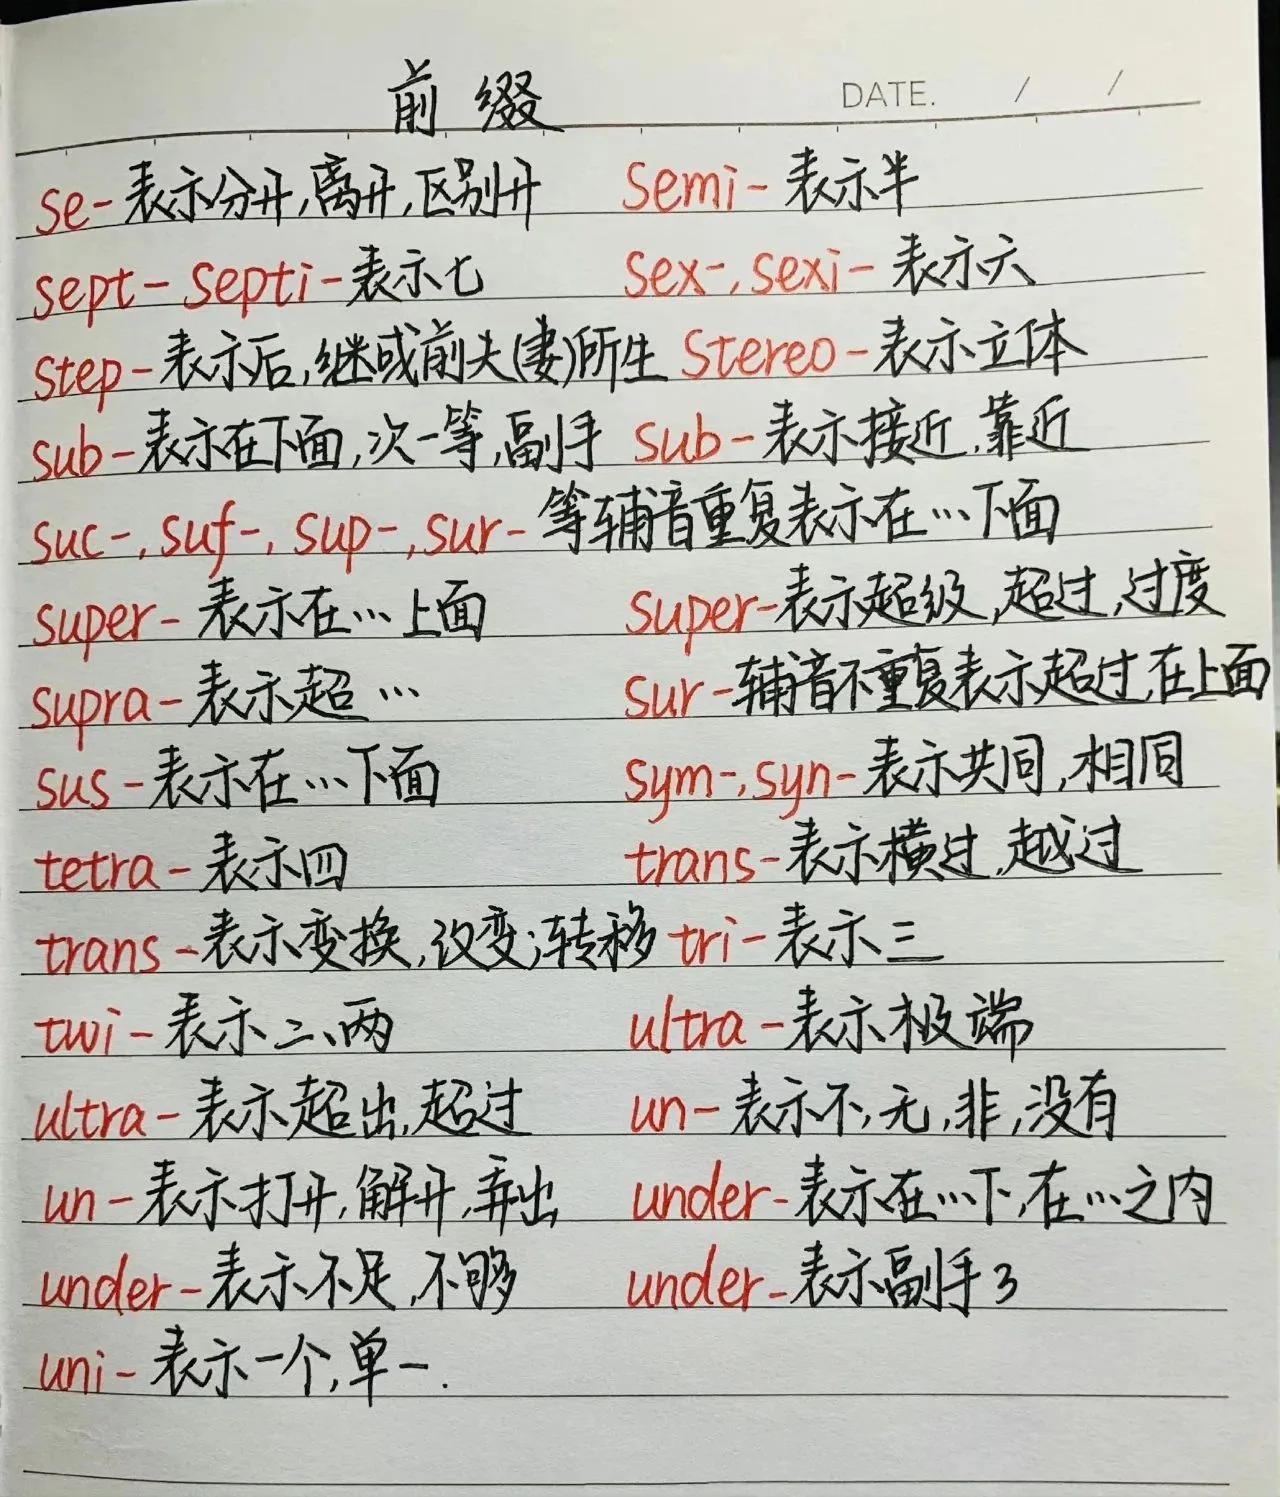 前缀 DATE. / /
se-表示分开,离开,区别开 semi-表示半
sept- septi-表示七 sex-,sexi-表示六
step-表示后,继或前夫(妻)所生 stereo-表示立体
sub-表示在下面,次一等,副手 sub-表示接近,靠近
suc-,suf-,sup-,sur-等辅音重复表示在…下面
super-表示在…上面 super-表示超级,超过,过度
supra-表示超… sur-辅音不重复表示超过,在上面
sus-表示在…下面 sym-,syn-表示共同,相同
tetra-表示四 trans-表示横过,越过
trans-表示变换,改变;转移 tri-表示三
twi-表示二、两 ultra-表示极端
ultra-表示超出,超过 un-表示不,无,非,没有
un-表示打开,解开,弄出 under-表示在…下,在…之内
under-表示不足,不够 under-表示副手3
uni-表示一个,单一.